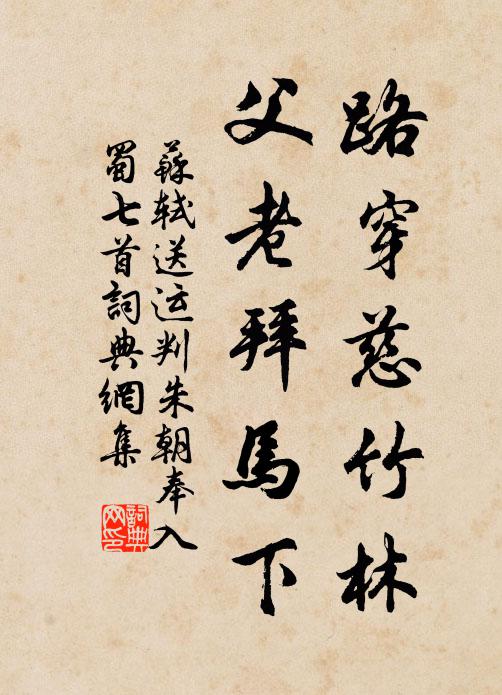 路穿慈竹林
父老拜馬下
蘇軾送运判朱朝奉入
蜀七首詞典網集
詞典
网印